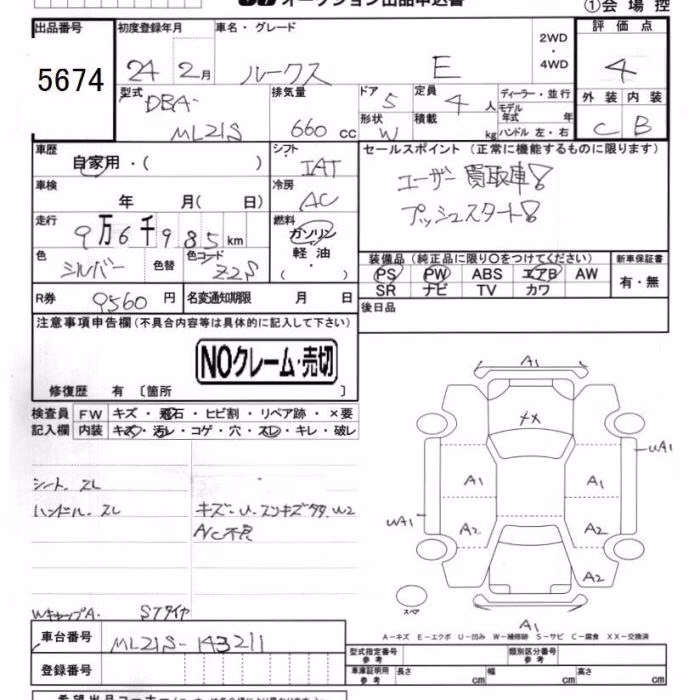 オークション出品申込書
①会場控
出品番号 初度登録年月 車名・グレード 2WD・4WD 評価点
5674 24年 2月 ルークス E 4
型式 DBA-ML21S 排気量 660cc
ドア 5 定員 4人 ディーラー・並行
モデル年式 年
形状 W 積載 kg ハンドル 左・右
外装 内装
C B
車歴 自家用・( )
シフト IAT
セールスポイント(正常に機能するものに限ります)
ユーザー買取車!
プッシュスタート!
車検 年 月( 日)
冷房 AC
走行 9万6千985km
燃料 ガソリン 軽油 ・( )
色 シルバー 色替 色コード Z2S
装備品(純正品に限り○をつけてください) 新車保証書
PS PW ABS エアB AW 有・無
SR ナビ TV カワ
R券 9560円 名変通知期限 月 日
後日品
注意事項申告欄(不具合内容等は具体的に記入して下さい)
NOクレーム・売切
修復歴 有〔箇所 〕
検査員 FW キズ・飛石・ヒビ割・リペア跡・×要
記入欄 内装 キズ・汚レ・コゲ・穴・スレ・キレ・破レ
シート.スレ
ハンドル.スレ キズ・U.スリキズ多.W2
A/C不良
WキャップA. STタイヤ
A1
XX
UA1
A1 A1
WA1
A2 A2
A2
スペア
A1
A-キズ E-エクボ U-凹み W-補修跡 S-サビ C-腐食 XX-交換済
車台番号 ML21S-143211
型式指定番号 参考 類別区分番号 参考
登録番号
車庫証明用 参考 長さ cm 幅 cm 高さ cm